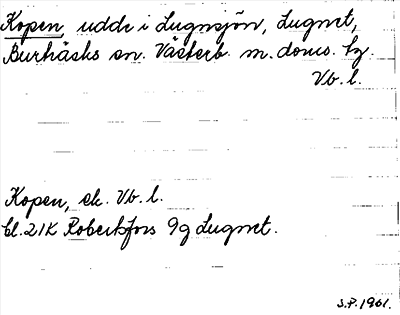 Kopen, udde i Lugnsjön, Lugnet,
Burträsks sn. Västerb. m. doms. tg.
Vb. l.
Kopen, ek. Vb. l.
bl. 21K Robertsfors 9g Lugnet.
S.P. 1961.